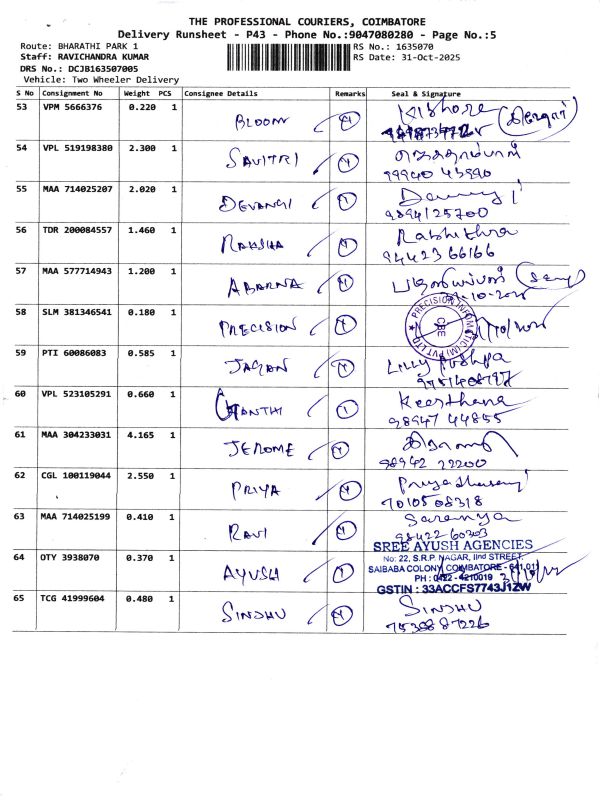 THE PROFESSIONAL COURIERS, COIMBATORE
Delivery Runsheet - P43 - Phone No.:9047080280 - Page No.:5
Route: BHARATHI PARK 1 RS No.: 1635070
Staff: RAVICHANDRA KUMAR RS Date: 31-Oct-2025
DRS No.: DCJB163507005
Vehicle: Two Wheeler Delivery
S No Consignment No Weight PCS Consignee Details Remarks Seal & Signature
53 VPM 5666376 0.220 1 BLOOM Kishore
54 VPL 519198380 2.300 1 SAVITRI
99940 45990
55 MAA 714025207 2.020 1 DEVANGI
9894125700
56 TDR 200084557 1.460 1 RAKSHA Rabhithra
94423 66166
57 MAA 577714943 1.200 1 ABARNA
58 SLM 381346541 0.180 1 PRECISION PRECISION INFOMATIC (M) PVT LTD CBE
59 PTI 60086083 0.585 1 JAGAN LILLY Pushpa
60 VPL 523105291 0.660 1 GHANTHI Keerthana
98947 44855
61 MAA 304233031 4.165 1 JEROME
98942 22200
62 CGL 100119044 2.550 1 PRIYA Priyadharsani
7010508318
63 MAA 714025199 0.410 1 RAVI Saranya
98422 60303
64 OTY 3938070 0.370 1 AYUSH SREE AYUSH AGENCIES
No: 22, S.R.P. NAGAR, IInd STREET,
SAIBABA COLONY, COIMBATORE - 641 011
PH : 0422 - 4210019
GSTIN : 33ACCFS7743J1ZW
65 TCG 41999604 0.480 1 SINDHU SINDHU